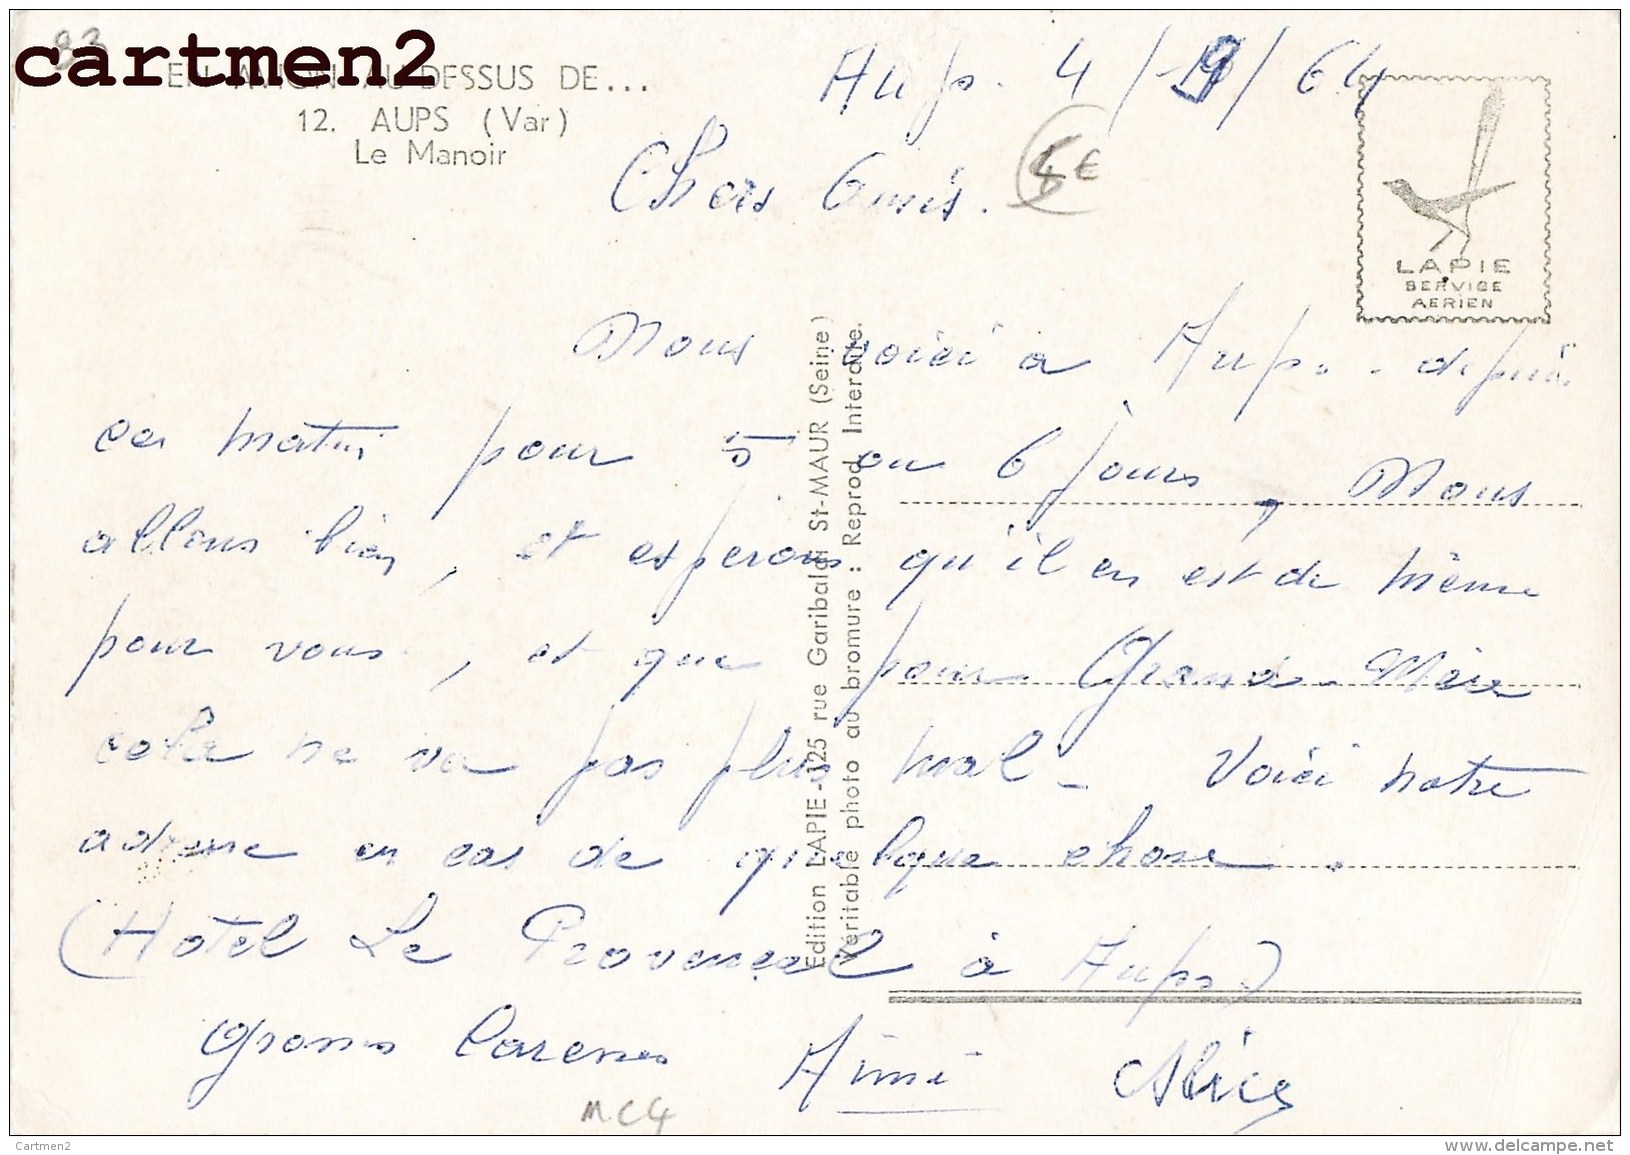 cartmen2
83
EN AVION AU-DESSUS DE...
12. AUPS (Var)
Le Manoir
Aups. 4/9/64
5 €
LAPIE
SERVICE
AERIEN
Chers Amis.
Nous voici a Aups. depuis
ce matin pour 5 ou 6 jours, Nous
allons bien, et esperons qu'il en est de même
pour vous, et que pour Grand-Mère
cela ne va pas plus mal - Voici notre
adresse en cas de quelque chose.
(Hotel Le Provençal à Aups)
Grosses Caresses Aimé Alice
MC4
Edition LAPIE - 125 rue Garibaldi St-MAUR (Seine)
Véritable photo au bromure : Reprod Interdite.
Cartmen2
www.delcampe.net